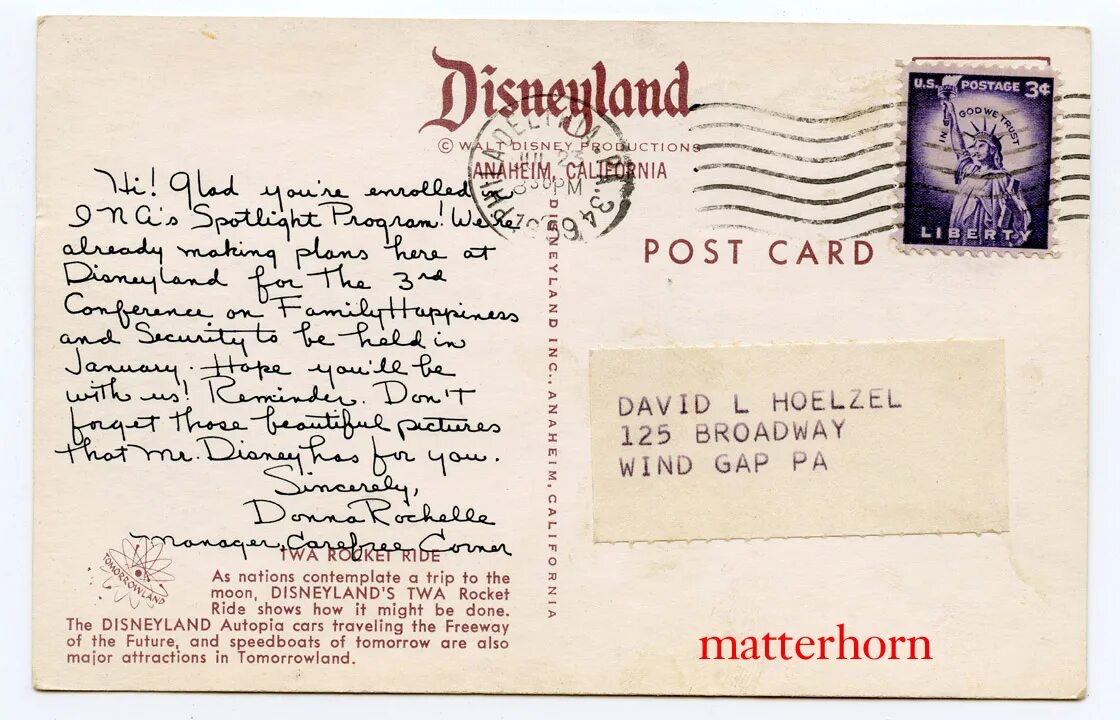 Disneyland
© WALT DISNEY PRODUCTIONS
ANAHEIM, CALIFORNIA
PHILADELPHIA, PA.
JUL 23
830 PM
1959
U.S. POSTAGE 3¢
IN GOD WE TRUST
LIBERTY
POST CARD
Hi! Glad you're enrolled in
INA's Spotlight Program! We're
already making plans here at
Disneyland for the 3rd
Conference on Family Happiness
and Security to be held in
January. Hope you'll be
with us! Reminder. Don't
forget those beautiful pictures
that Mr. Disney has for you.
Sincerely,
Donna Rochelle
Manager, Carefree Corner
DISNEYLAND INC., ANAHEIM, CALIFORNIA
DAVID L HOELZEL
125 BROADWAY
WIND GAP PA
TOMORROWLAND
TWA ROCKET RIDE
As nations contemplate a trip to the
moon, DISNEYLAND'S TWA Rocket
Ride shows how it might be done.
The DISNEYLAND Autopia cars traveling the Freeway
of the Future, and speedboats of tomorrow are also
major attractions in Tomorrowland.
matterhorn